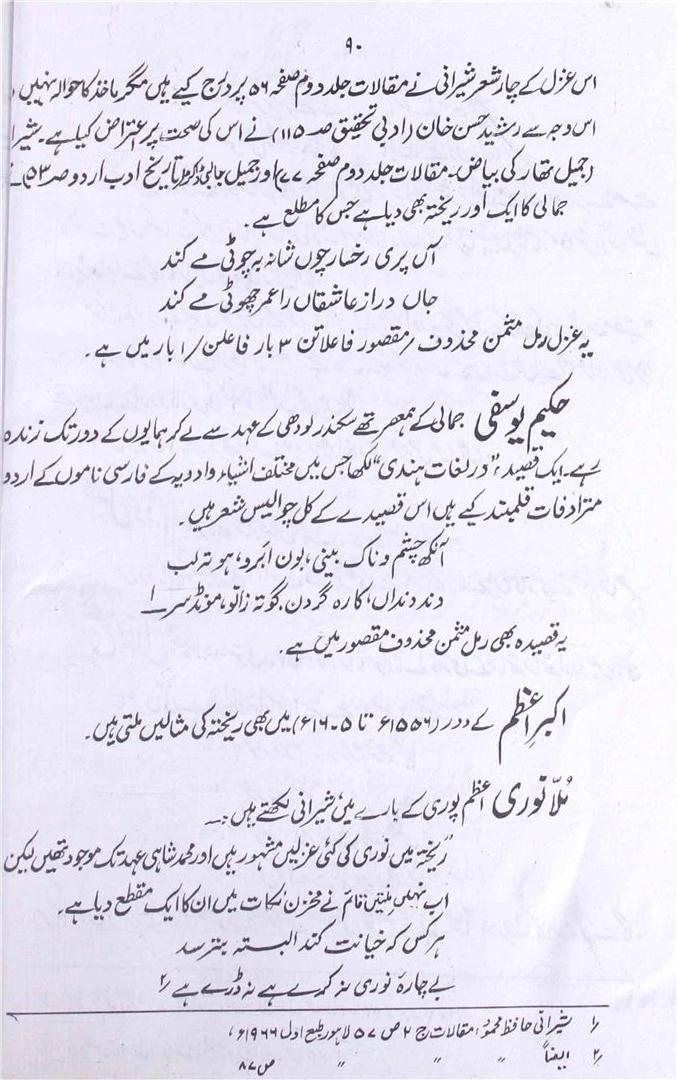 ۹۰
اس غزل کے چار شعر شیرانی نے مقالات جلد دوم صفحہ ۵۶ پر درج کیے ہیں مگر ماخذ کا حوالہ نہیں
اس وجہ سے رشید حسن خان (ادبی تحقیق صـ ۱۱۵) نے اس کی صحت پر اعتراض کیا ہے۔ شیرا
(جمیل تھار کی بیاض۔ مقالات جلد دوم صفحہ ۷۷) اور جمیل جالبی ڈاکٹر (تاریخ ادب اردو صـ ۵۳) نے
جمالی کا ایک اور ریختہ بھی دیا ہے جس کا مطلع ہے۔
آں پری رخسار چوں شانہ بہ چوٹی مے کند
جاں دراز عاشقاں را عمر چھوٹی مے کند
یہ غزل رمل مثمن محذوف / مقصور فاعلاتن ۳ بار فاعلن / ۱ بار میں ہے۔
حکیم یوسفی جمالی کے ہمعصر تھے سکندر لودھی کے عہد سے لے کر ہمایوں کے دور تک زندہ
رہے۔ ایک قصیدہ "در لغات ہندی" لکھا جس میں مختلف اشیاء و ادویہ کے فارسی ناموں کے اردو
مترادفات قلمبند کیے ہیں اس قصیدے کے کل چوالیس شعر ہیں۔
آنکھ چشم و ناک بینی، بون ابرو، ہوتہ لب
دند دنداں، کارہ گردن، گوتہ زانو، مونڈ سر ۱
یہ قصیدہ بھی رمل مثمن محذوف مقصور میں ہے۔
اکبرِ اعظم کے دور (۱۵۵۶ء تا ۱۶۰۵ء) میں بھی ریختہ کی مثالیں ملتی ہیں۔
مُلّا نوری اعظم پوری کے بارے میں شیرانی لکھتے ہیں:۔
"ریختہ میں نوری کی کئی غزلیں مشہور ہیں اور محمد شاہی عہد تک موجود تھیں لیکن
اب نہیں ملتیں قائم نے مخزن نکات میں ان کا ایک مقطع دیا ہے۔
ہر کس کہ خیانت کند البتہ بترسد
بے چارۂ نوری نہ کرے ہے نہ ڈرے ہے ۲؍
۱؍ شیرانی حافظ محمود، مقالات ج ۲ ص ۵۷ لاہور طبع اول ۱۹۶۶ء،
۲؍ ایضاً " " " ص ۸۷